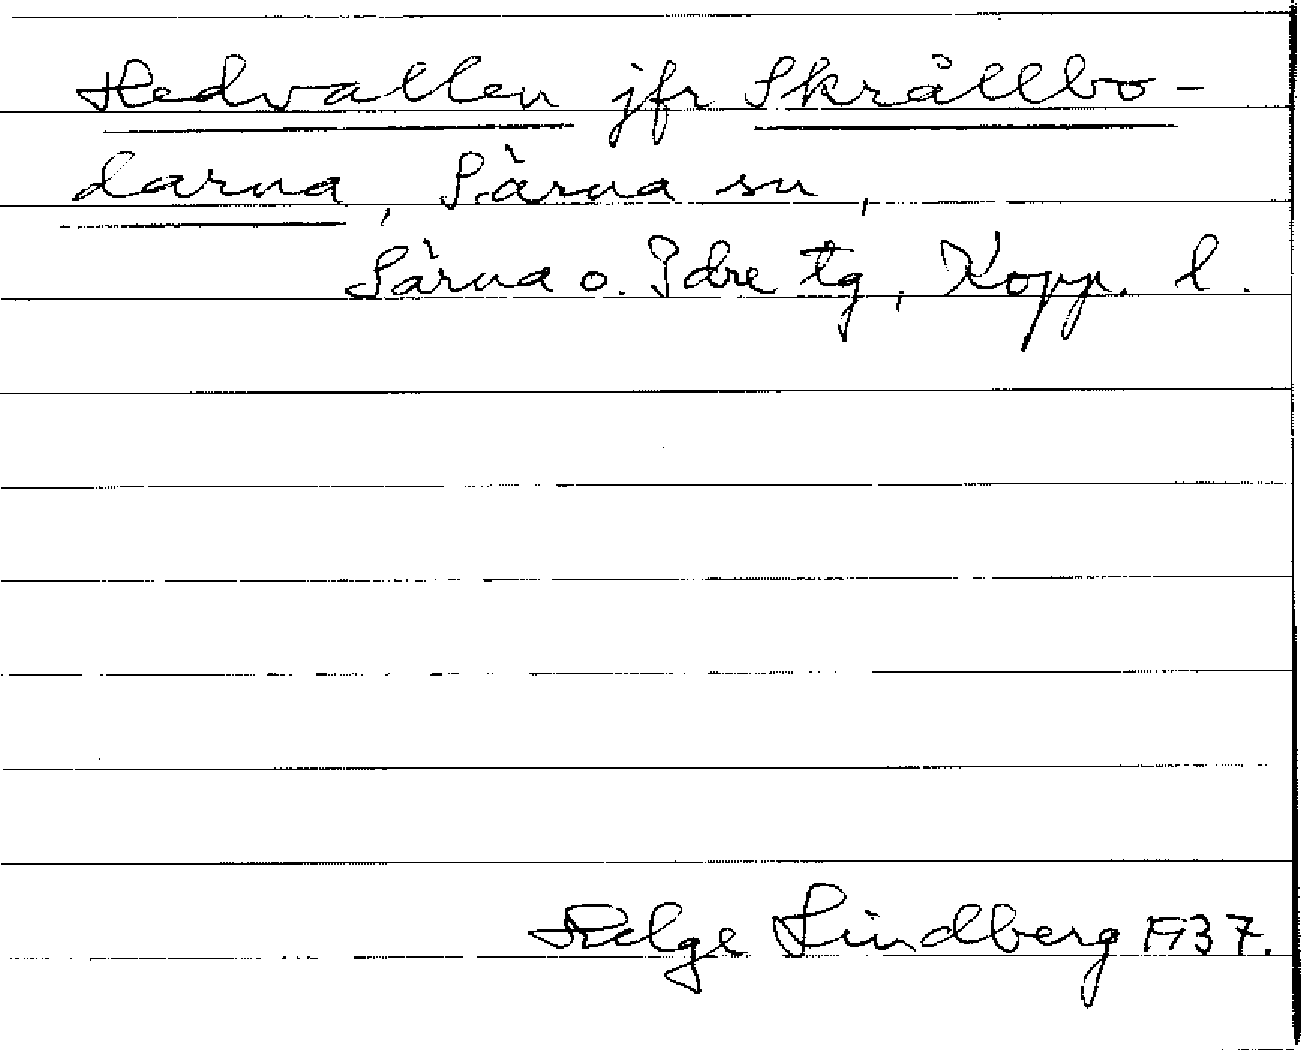 Hedvallen jfr Skrållbo-
darna, Särna sn,
Särna o. Idre tg, Kopp. l.
Helge Lindberg 1937.